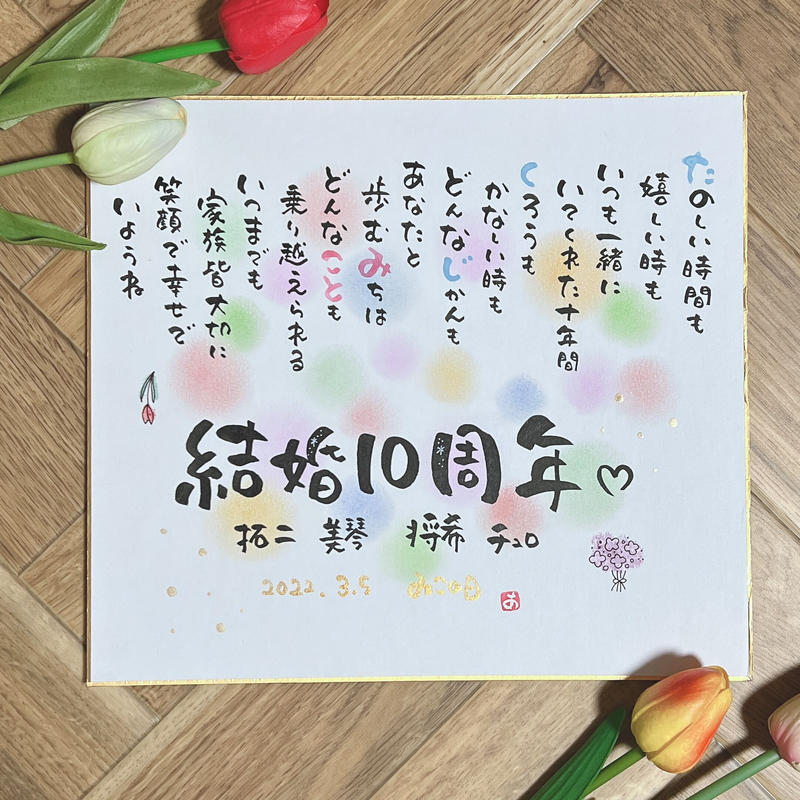 たのしい時間も
嬉しい時も
いつも一緒に
いてくれた十年間
くろうも
かなしい時も
どんなじかんも
あなたと
歩むみちは
どんなことも
乗り越えられる
いつまでも
家族皆大切に
笑顔で幸せで
いようね
結婚10周年♡
拓二 美琴 将希 チュロ
2022.3.5
お